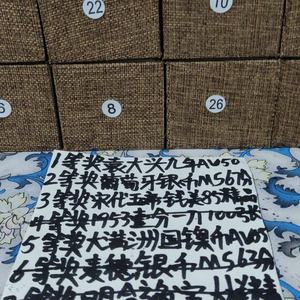 22
10
6
8
26
1等奖袁大头九年AU50
2等奖葡萄牙银币MS67分
3等奖宋代五帝钱美85精
4等奖1953壹分一刀100张
5等奖大满洲国镍币AU55
6等奖麦穗银币MS62分